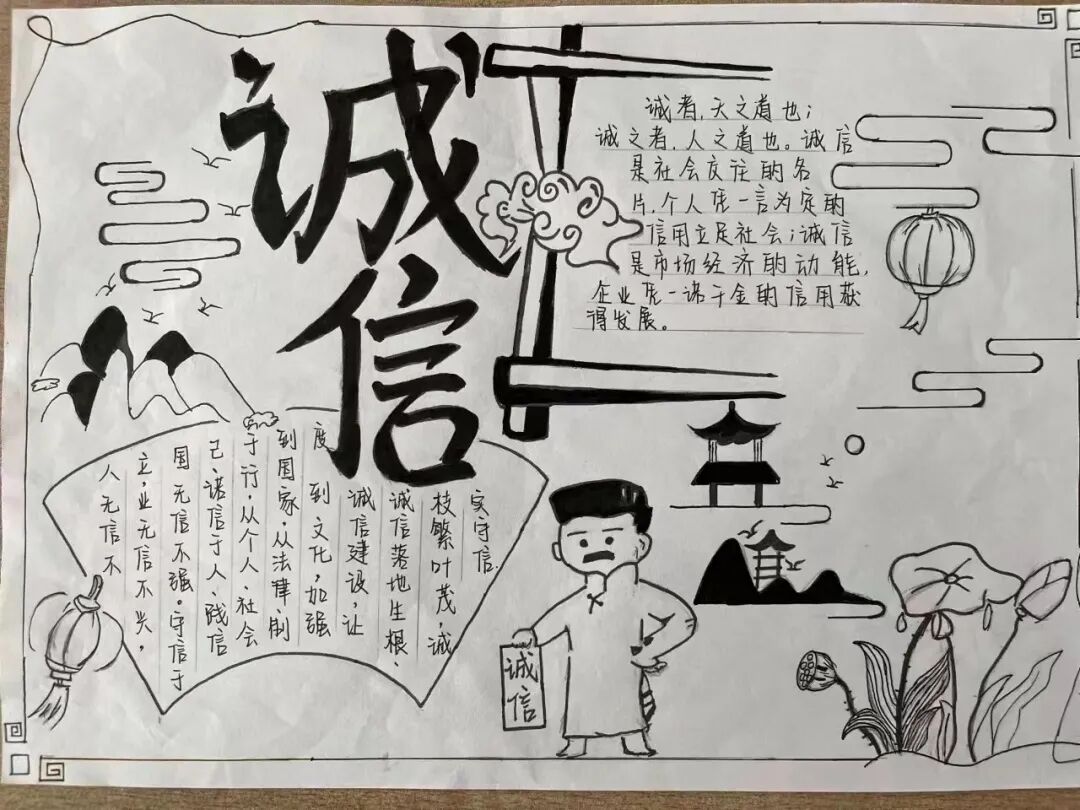 诚信
诚者,天之道也;
诚之者,人之道也。诚信
是社会交往的名
片,个人凭一言为定的
信用立足社会;诚信
是市场经济的动能,
企业凭一诺千金的信用获
得发展。
人无信不
立,业无信不兴,
国无信不强。守信于
己诺信于人、践信
于行,从个人、社会
到国家,从法律制
度到文化,加强
诚信建设,让
诚信落地生根、
枝繁叶茂,诚
实守信.
诚信